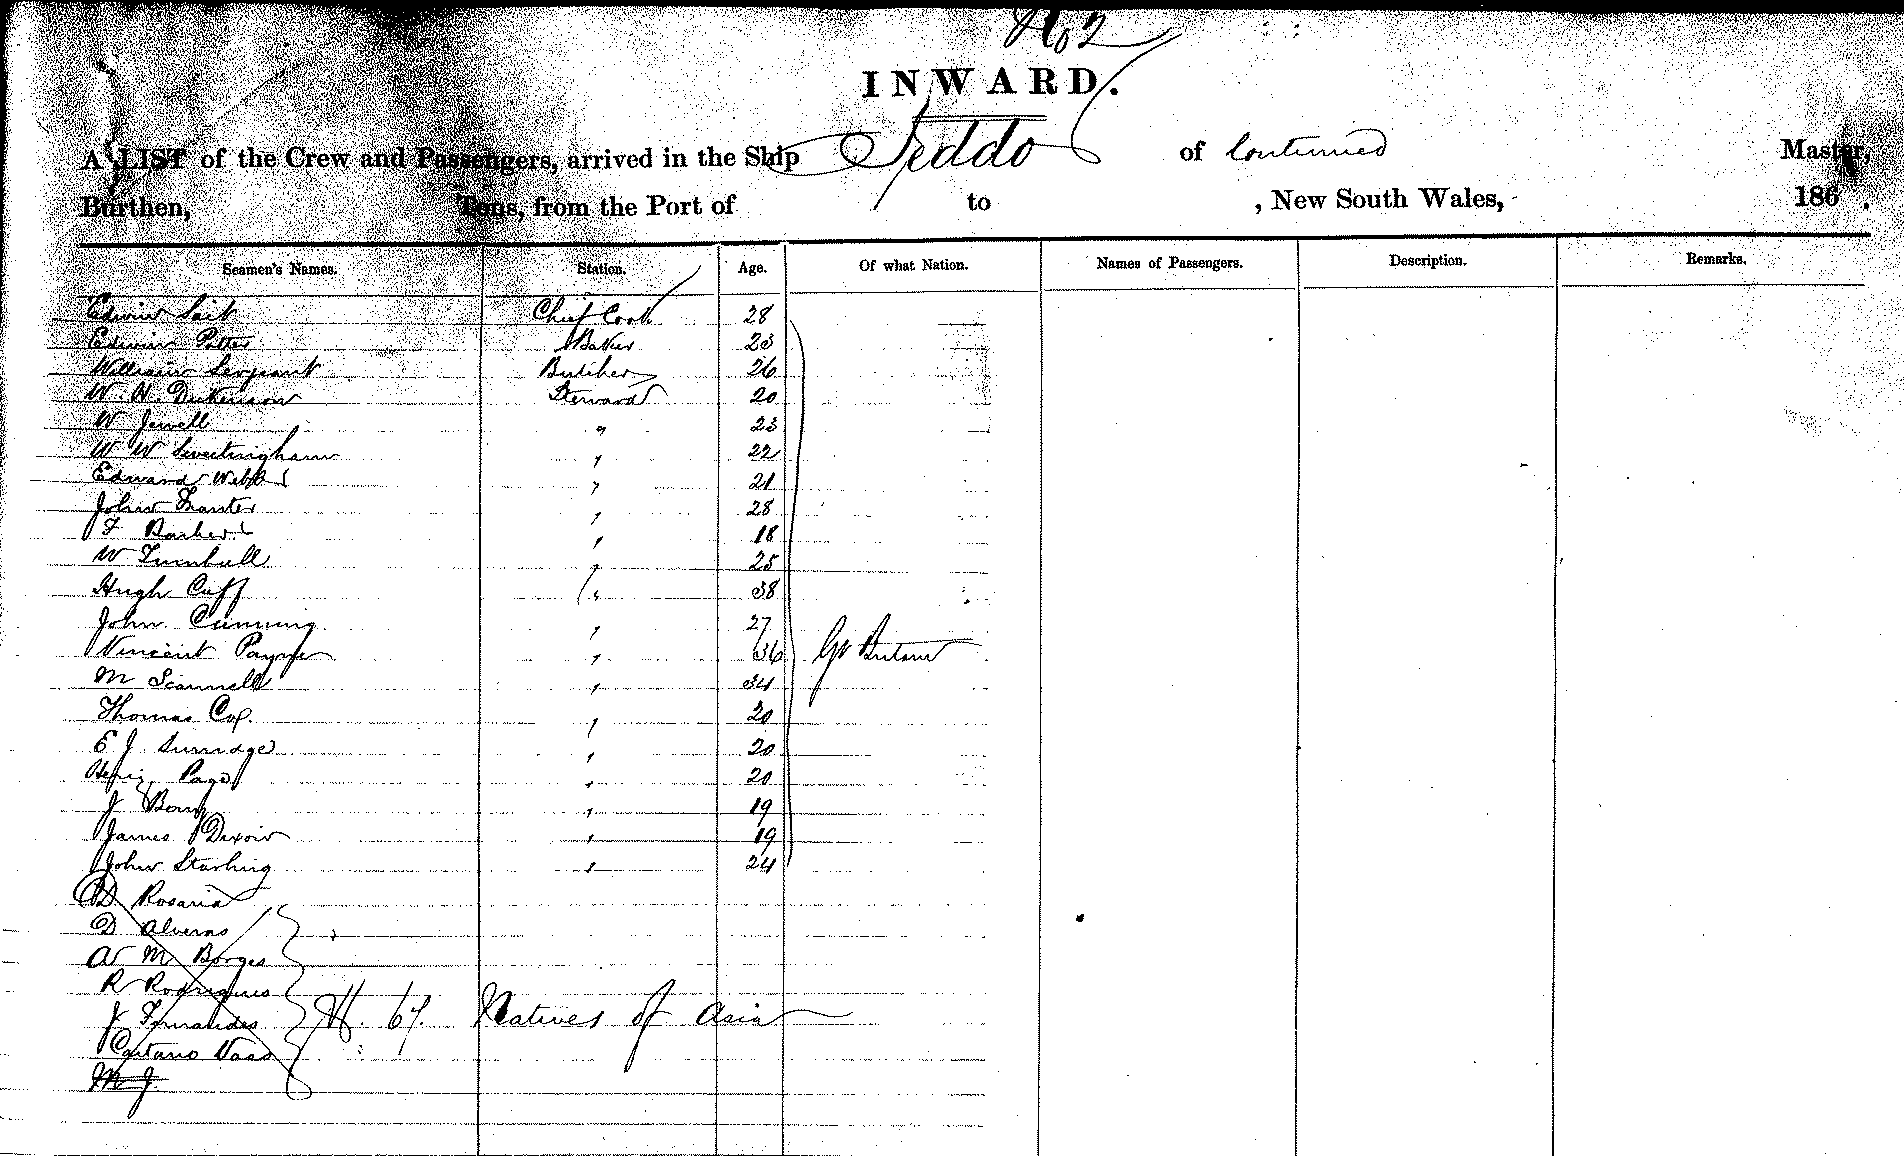 INWARD.
A LIST of the Crew and Passengers, arrived in the Ship Jeddo of Continued Master,
Burthen, Tons, from the Port of to , New South Wales, 186 .
Seamen's Names. Station. Age. Of what Nation. Names of Passengers. Description. Remarks.
Edwin Sait Chief Cook 28
Edwin Potter Baker 23
William Serjeant Butcher 26
W. H. Dickenson Steward 20
W Jewell " 23
W W Sweetingham " 22
Edward Webb " 21
John " 28
F Barber " 18
W Turnbull " 25
Hugh Cuff " 38
John Cumming " 27
Vincent Payne " 36 Gt Britain
M Scannell " 34
Thomas Cox. " 20
E J Surridge " 20
Henry Page " 20
J " 19
James Dixon " 19
John Starling " 24
D Rosaria
D Alveras
A M Borges
R Rodrigues
J Fernandes 67. Natives of Asia
Caetano Vaas
M J.